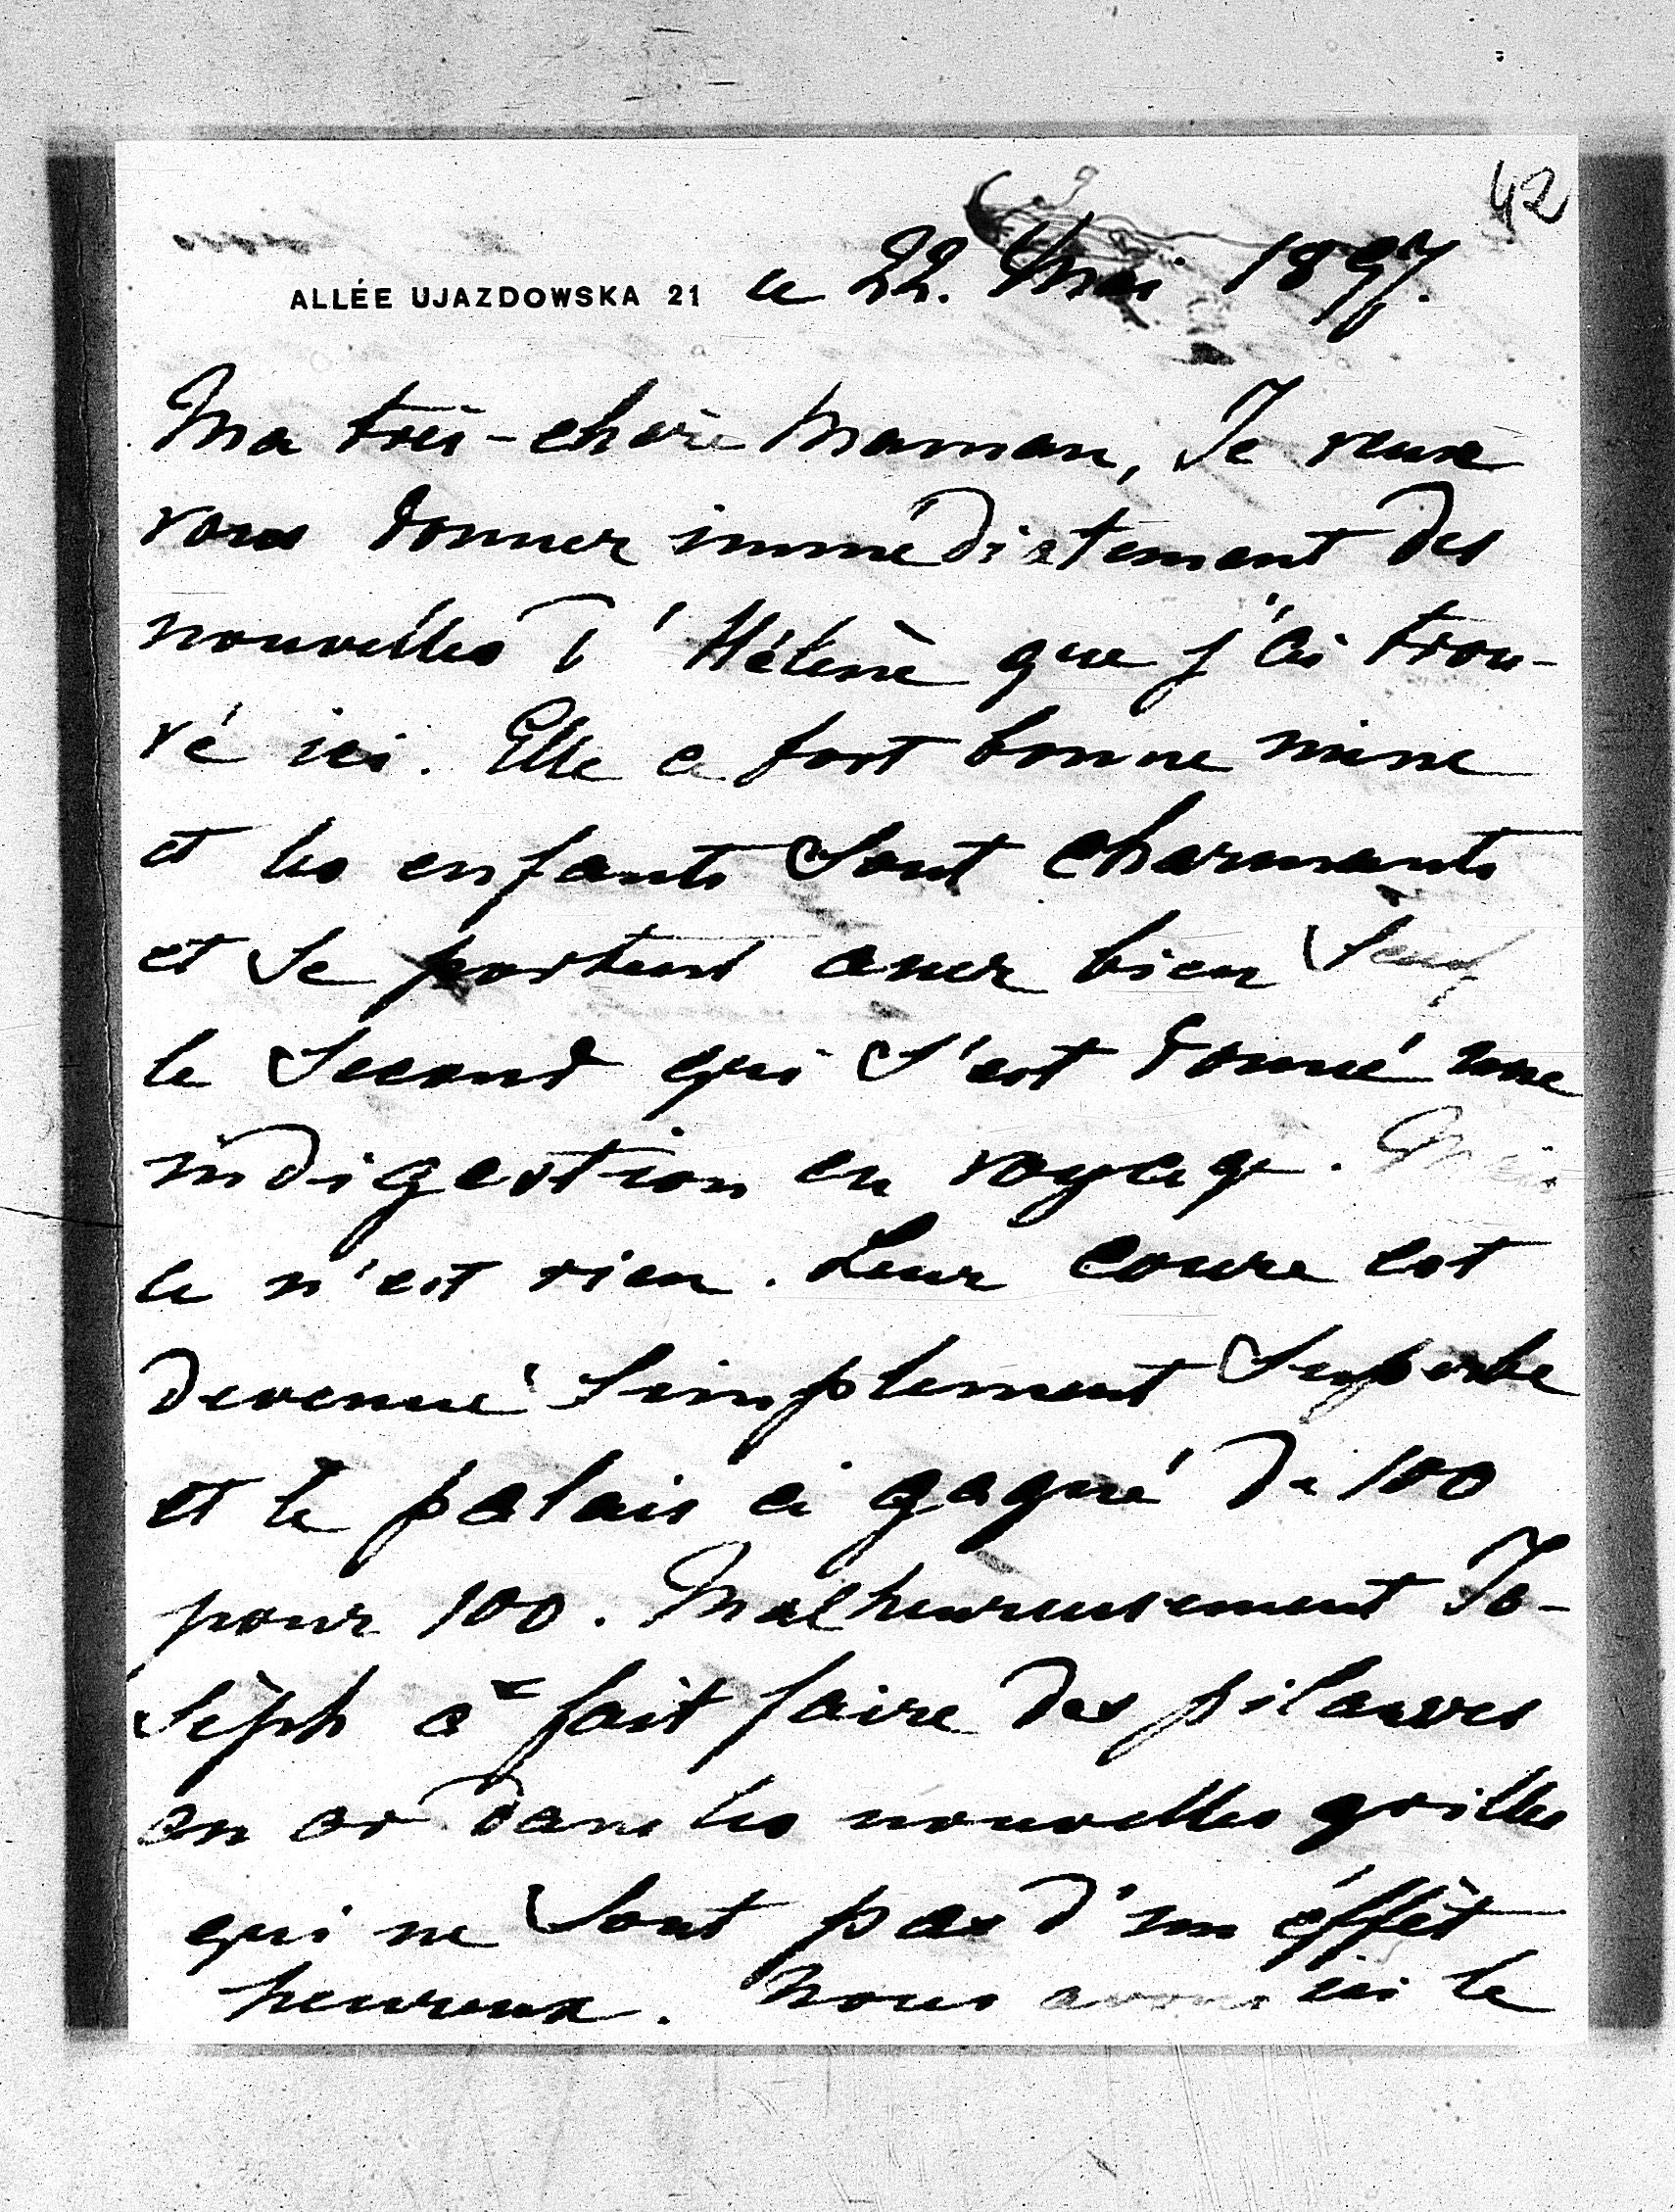 42
ALLÉE UJAZDOWSKA 21 le 22. Mai 1897.
Ma très-chère Maman, Je veux
vous donner immédiatement des
nouvelles d'Hélène que j'ai trou-
vé ici. Elle a fort bonne mine
et les enfants sont charmants
et se portent assez bien sauf
le second qui s'est donné une
indigestion en voyage. Mais
ce n'est rien. Leur cour est
devenue simplement superbe
et le palais a gagné de 100
pour 100. Malheureusement Jo-
sèph a fait faire des
en or dans les nouvelles grilles
qui ne sont pas d'un éffèt
heureux. Nous avons ici le